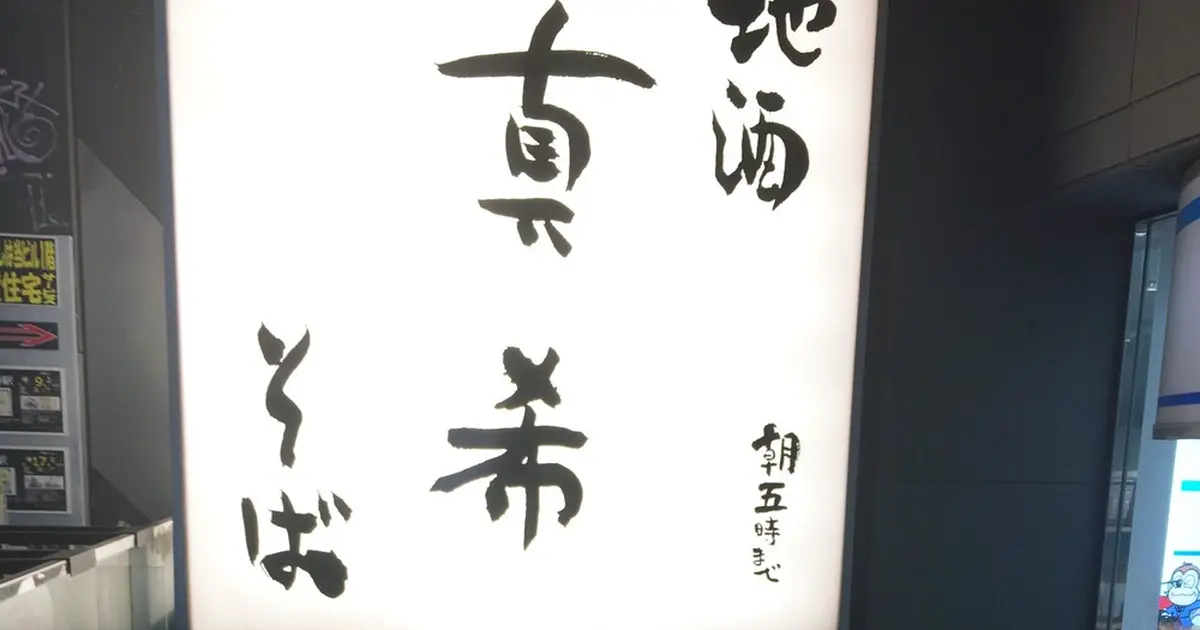 地酒
朝五時まで
真希
そば
住宅